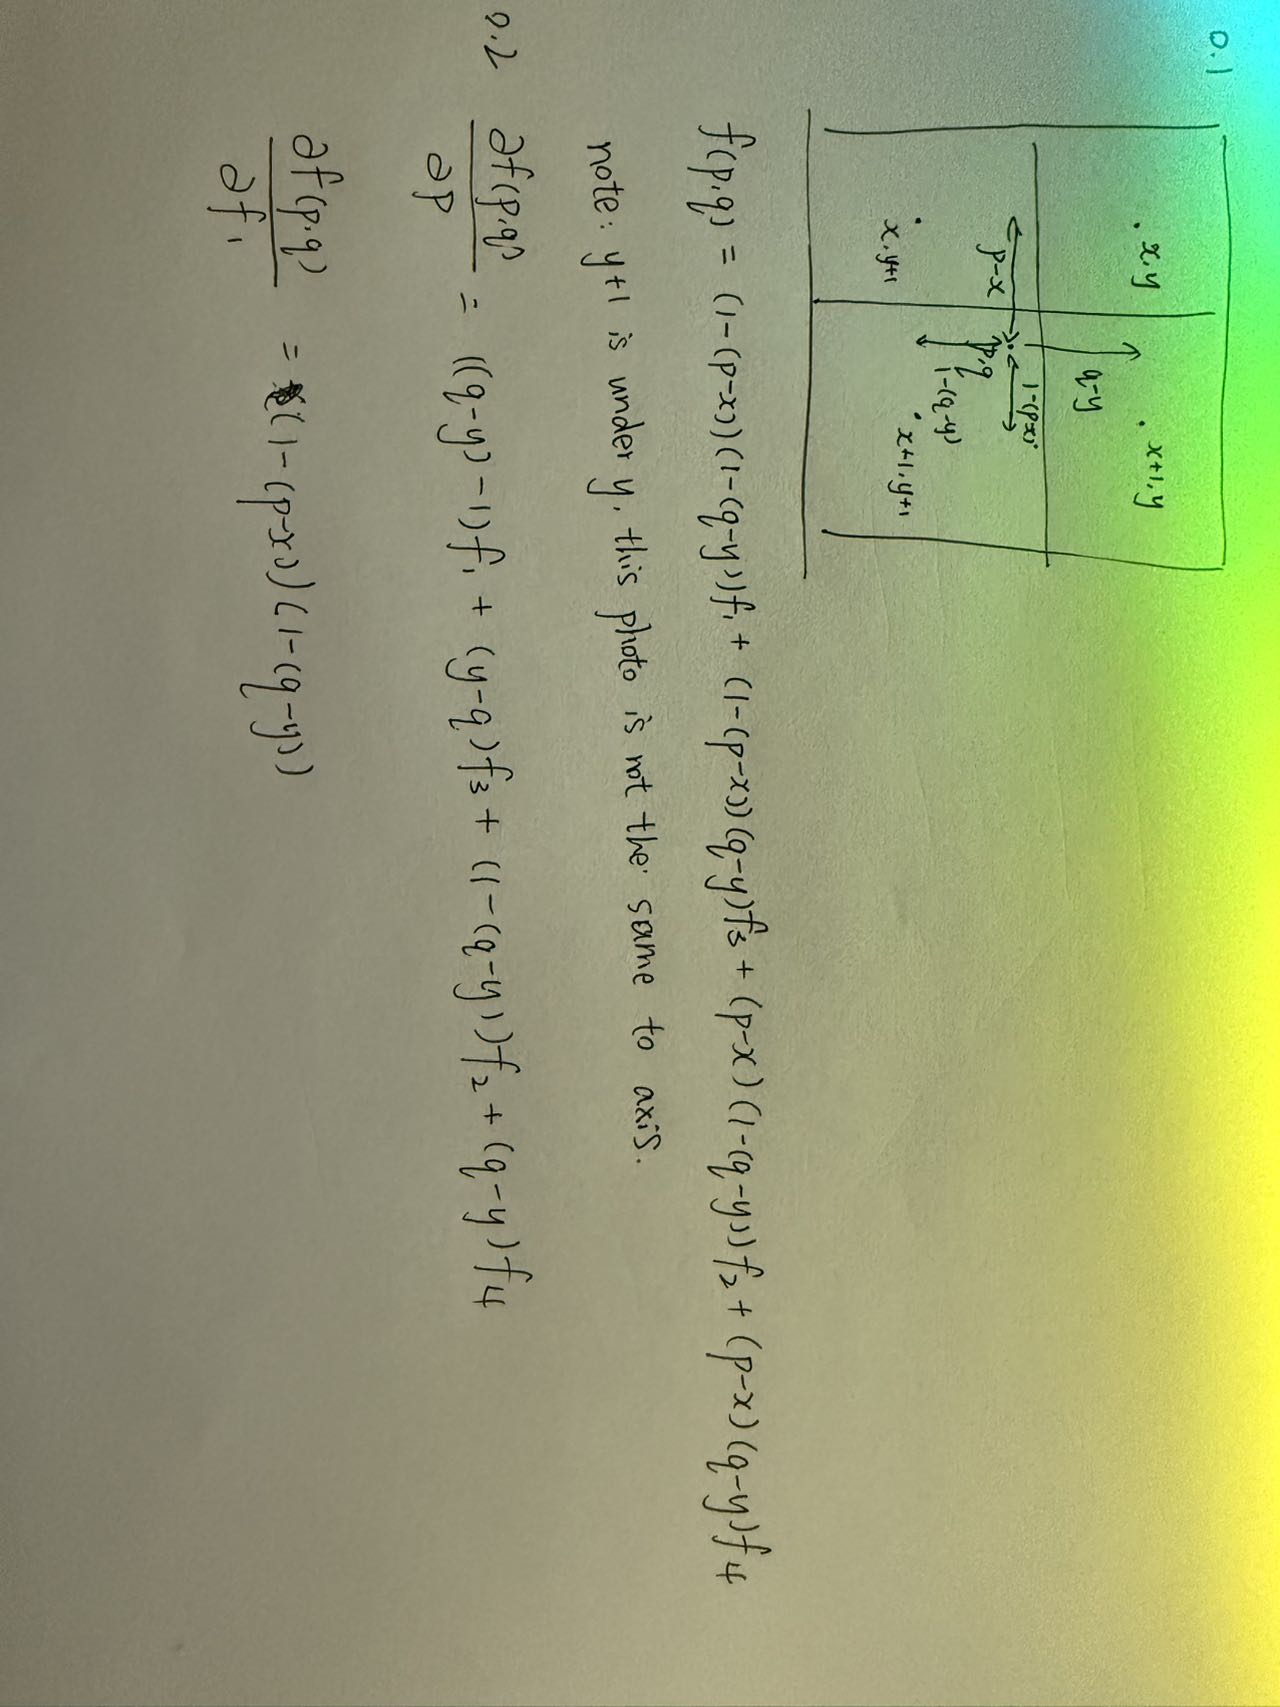 0.1
x,y
x+1,y
q-y
1-(p-x)
p-x
p,q
1-(q-y)
x,y+1
x+1,y+1
f(p,q) = (1-(p-x))(1-(q-y))f₁ + (1-(p-x))(q-y)f₃ + (p-x)(1-(q-y))f₂ + (p-x)(q-y)f₄
note: y+1 is under y, this photo is not the same to axis.
0.2 ∂f(p,q)/∂p = ((q-y)-1)f₁ + (y-q)f₃ + (1-(q-y))f₂ + (q-y)f₄
∂f(p,q)/∂f₁ = (1-(p-x))(1-(q-y))